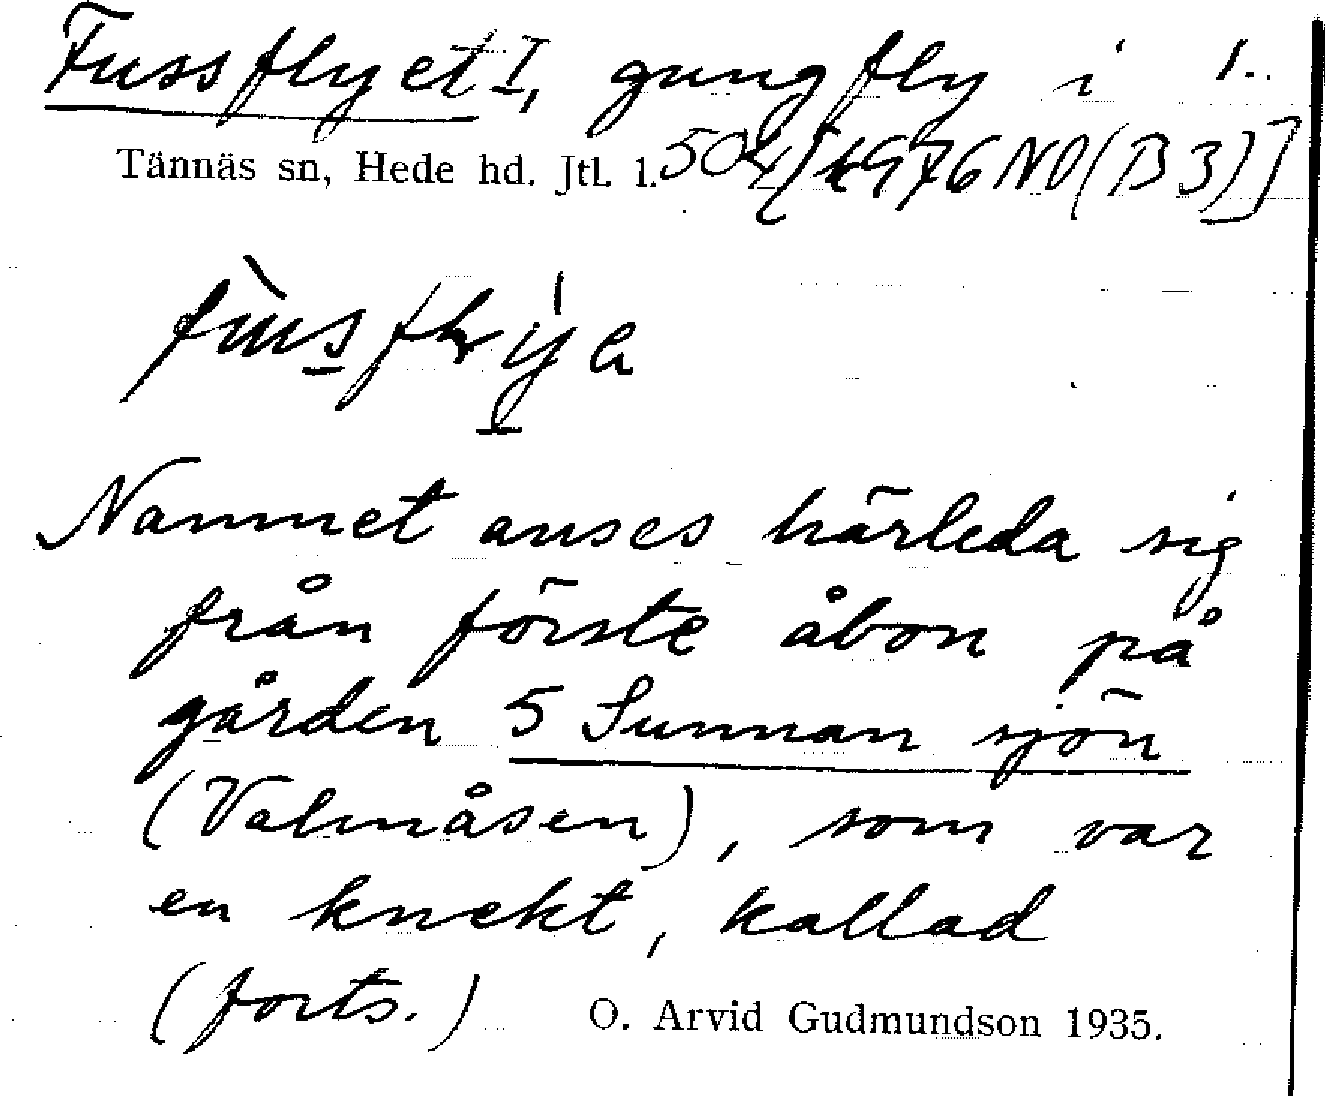 Fussflyet I, gungfly i 1..
Tännäs sn, Hede hd. Jtl. l. 504 [4976 NO (B3)]
Namnet anses härleda sig
från förste åbon på
gården 5 Sunnan sjön
(Valmåsen), som var
en knekt, kallad
(forts.) O. Arvid Gudmundson 1935.